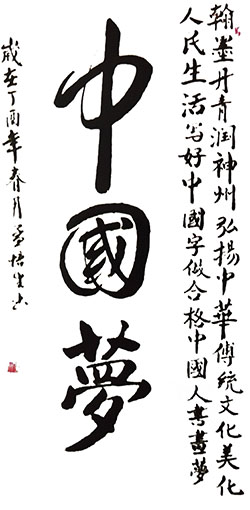 翰墨丹青润神州弘揚中華傳统文化美化
人民生活写好中國字做合格中國人書畫夢
中國夢
歲在丁酉年春月